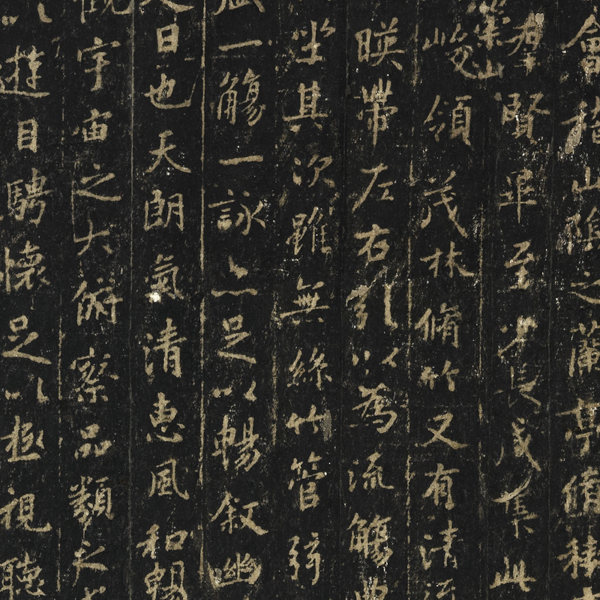 會稽山陰之蘭亭脩稧
羣賢畢至少長咸集此
崇山
峻領茂林脩竹又有清流
暎帶左右引以為流觴曲
坐其次雖無絲竹管弦
一觴一詠亦足以暢敘幽
日也天朗氣清惠風和暢
觀宇宙之大俯察品類之
以遊目騁懷足以極視聽